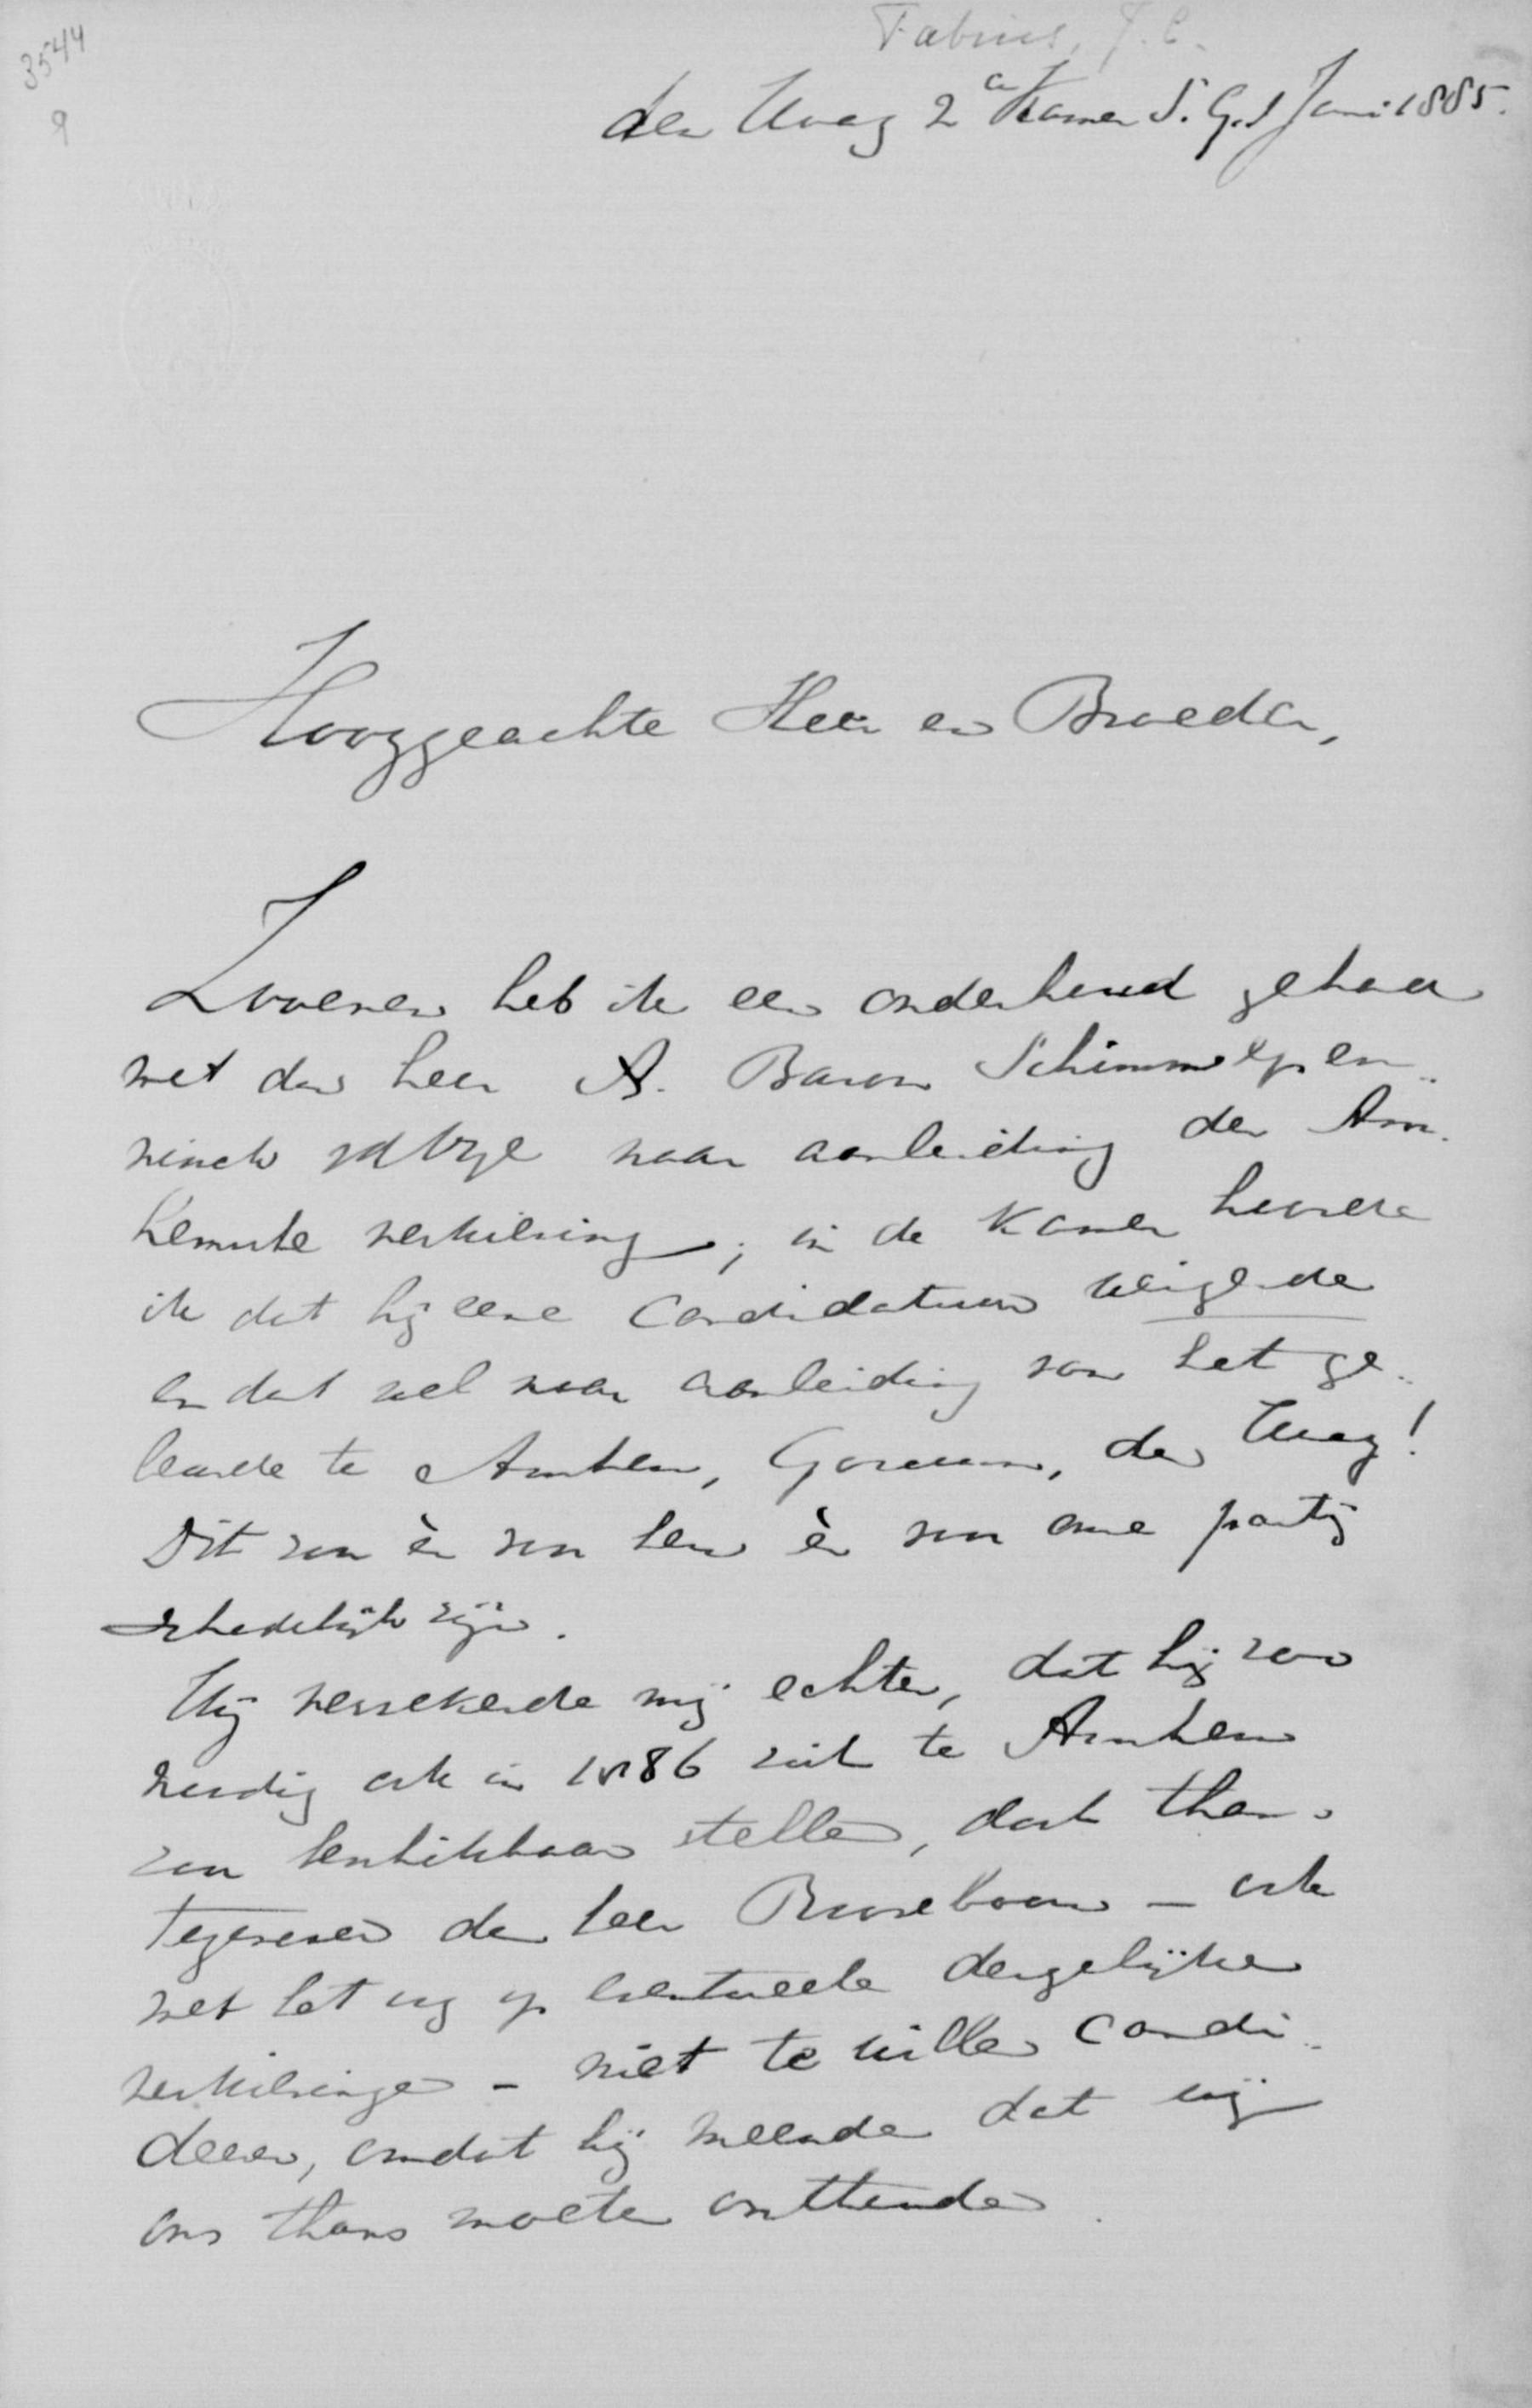 3544
9
Fabius, J.C.
den Haag 2e Kamer S.G. 1 Juni 1885.
Hooggeachte Heer en Broeder,
Zooeven heb ik een onderhoud gehad
met den heer A. Baron Schimmelpen-
ninck vd Oye naar aanleiding der Arn-
hemsche verkiezing; in de Kamer hoorde
ik dat hij eene Candidatuur weigerde
en dat wel naar aanleiding van het ge-
beurde te Arnhem, Gorcum, den Haag!
Dit zou èn voor hem èn voor onze partij
schadelijk zijn.
Hij verzekerde mij echter, dat hij zoo
noodig ook in 1886 zich te Arnhem
zou beschikbaar stellen, doch thans
tegenover den heer Rooseboom – ook
met het oog op eventueele dergelijke
verkiezingen – niet te willen candi-
deeren, omdat hij meende dat wij
ons thans moeten onthouden.